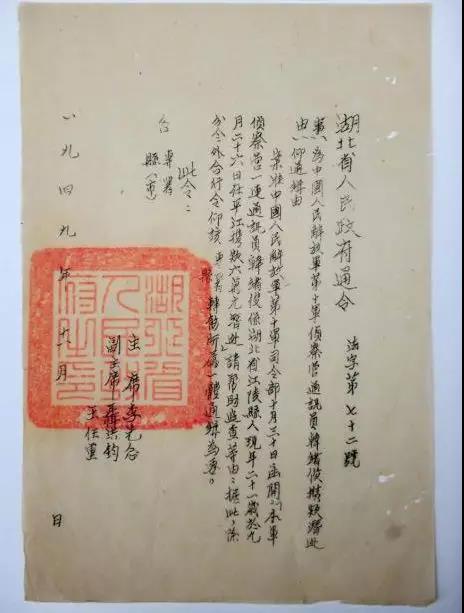 湖北省人民政府通令
法字第七十二號
事由
為中國人民解放軍第十軍偵察營通訊員韓緒俊携款潛逃
仰通緝由
案准中國人民解放軍第十軍司令部十月三十日函開「本軍
偵察營一連通訊員韓緒俊係湖北省江陵縣人現年二十一歲於九
月二十六日在平江携款六萬元潛逃」請幫助監查等由:據此,除
分令外合行令仰該專署縣轉飭所屬一體通緝為要。
此令:
各專署縣(市)
主席李先念
副主席聶洪鈞
王任重
一九四九年十一月 日
湖北省人民政府之印